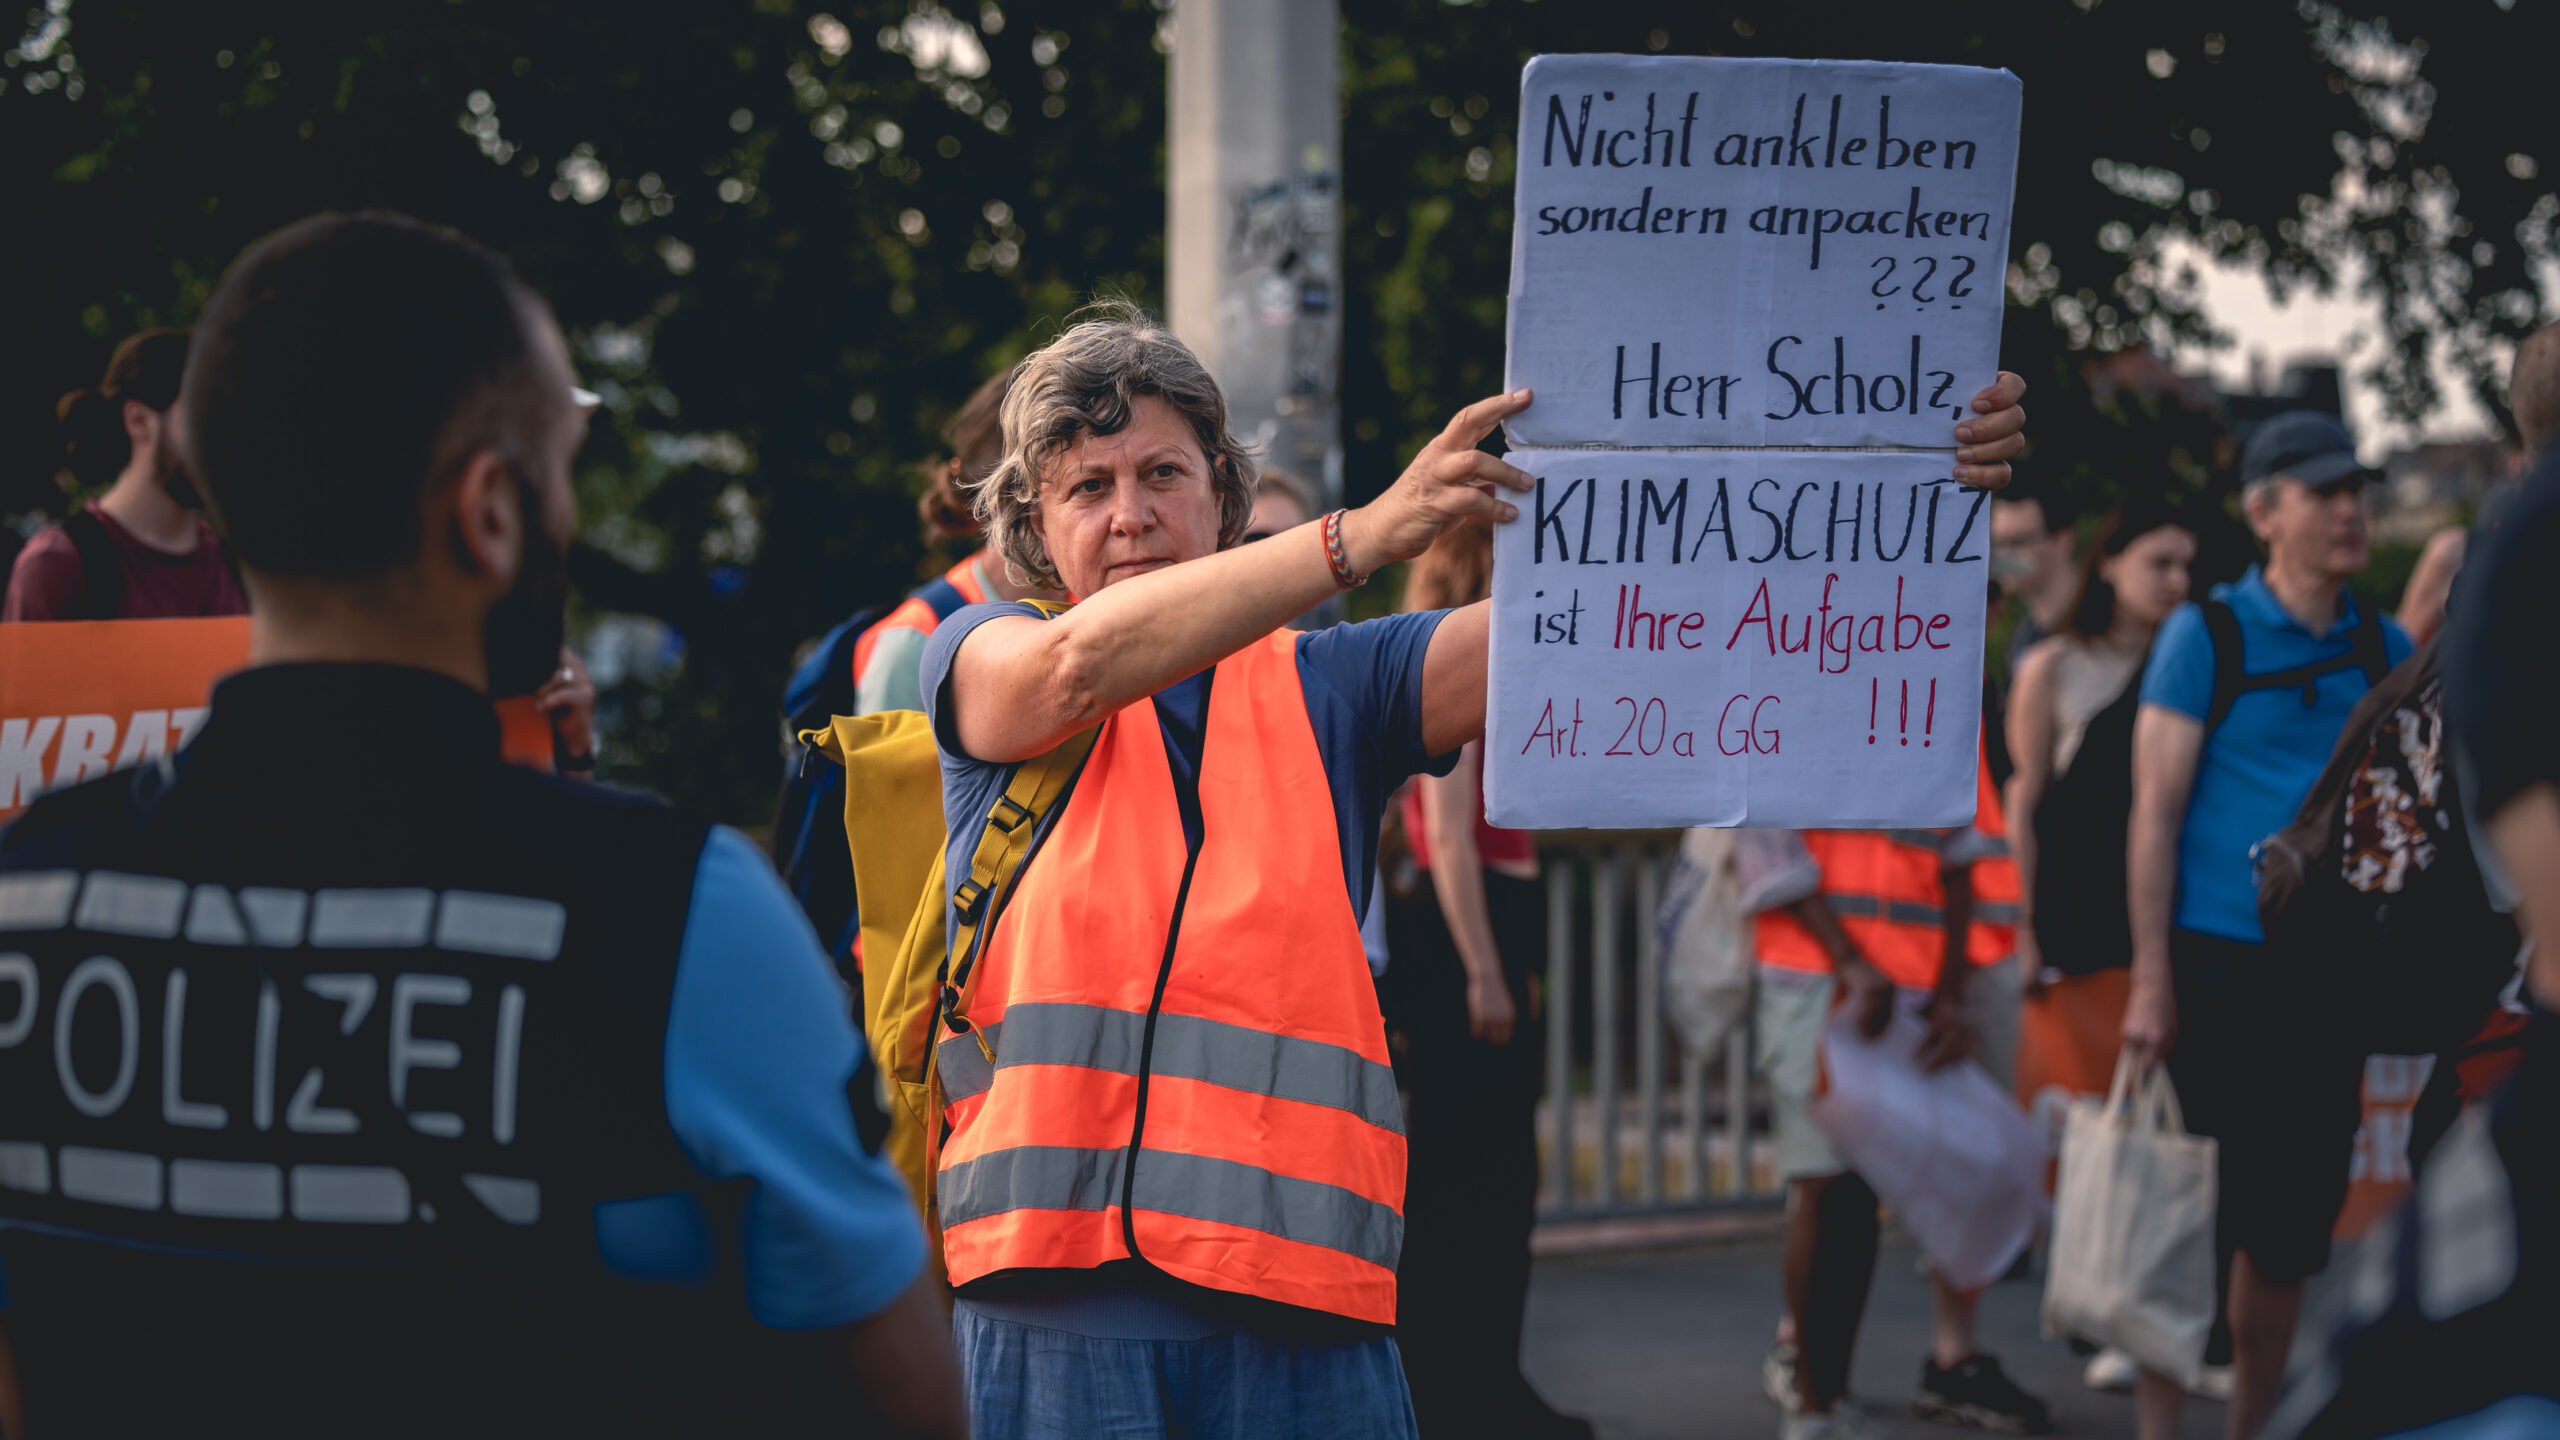 Nicht ankleben
sondern anpacken
???
Herr Scholz,
KLIMASCHUTZ
ist Ihre Aufgabe
Art. 20a GG !!!
KRAT
POLIZEI